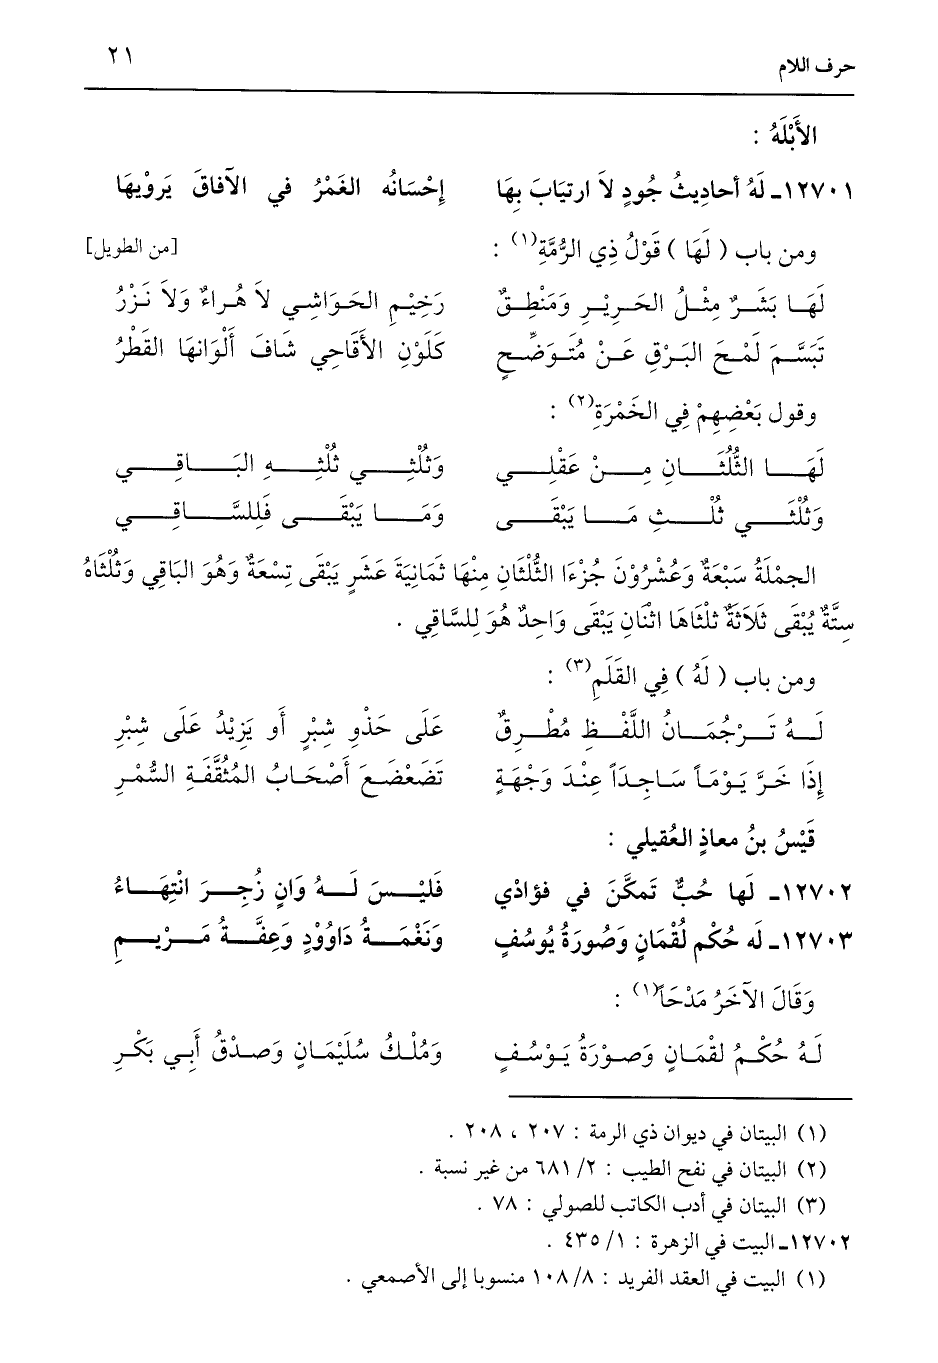 حرف اللام ٢١
الأَبْلَهُ :
١٢٧٠١ـ لَهُ أحادِيثُ جُودٍ لاَ ارتيَابَ بِهَا إِحْسَانُه الغَمْرُ في الآفاقَ يَروْيهَا
ومن باب ( لَهَا ) قَوْلُ ذِي الرُّمَّةِ(١) : [من الطويل]
لَهَا بَشَرٌ مِثْلُ الحَرِيْرِ وَمَنْطِقٌ رَخِيْمِ الحَوَاشِي لاَ هُراءٌ وَلاَ نَزْرُ
تَبَسَّمَ لَمْحَ البَرْقِ عَنْ مُتَوَضِّحٍ كَلَوْنِ الأَقَاحِي شَافَ أَلْوَانهَا القَطْرُ
وقول بَعْضِهِمْ فِي الخَمْرَةِ(٢) :
لَهَا الثُّلُثَانِ مِنْ عَقْلِي وَثُلْثِي ثُلْثِهِ البَاقِي
وَثُلْثَي ثُلْثِ مَا يَبْقَى وَمَا يَبْقَى فَلِلسَّاقِي
الجمْلَةُ سَبْعَةٌ وَعُشْرُوْنَ جُزْءَا الثُّلْثَانِ مِنْهَا ثَمَانِيَةَ عَشَرٍ يَبْقَى تِسْعَةٌ وَهُوَ البَاقِي وَثُلْثَاهُ
سِتَّةٌ يُبْقَى ثَلاَثَةٌ ثلْثَاهَا اثْنَانِ يَبْقَى وَاحِدٌ هُوَ لِلسَّاقِي .
ومن باب ( لَهُ ) فِي القَلَمِ(٣) :
لَهُ تَرْجُمَانُ اللَّفْظِ مُطْرِقٌ عَلَى حَذْوِ شِبْرٍ أَو يَزِيْدُ عَلَى شِبْرِ
إِذَا خَرَّ يَوْمَاً سَاجِدَاً عِنْدَ وَجْهَةٍ تَضَعْضَعَ أَصْحَابُ المُثَقَّفَةِ السُّمْرِ
قَيْسُ بنُ معاذٍ العُقيلي :
١٢٧٠٢ـ لَها حُبٌّ تَمكَّنَ في فؤاذي فَليْسَ لَهُ وَانٍ زُجِرَ انْتِهَاءُ
١٢٧٠٣ـ لَه حُكْم لُقْمَانٍ وَصُورَةُ يُوسُفٍ وَنَغْمَةُ دَاوُوْدٍ وَعِفَّةُ مَرْيمِ
وَقَالَ الآخَرُ مَدْحَاً(١) :
لَهُ حُكْمُ لقْمَانٍ وَصوْرَةُ يَوْسُفٍ وَمُلْكُ سُلَيْمَانٍ وَصدْقُ أَبِي بَكْرِ
(١) البيتان في ديوان ذي الرمة : ٢٠٧ ، ٢٠٨ .
(٢) البيتان في نفح الطيب : ٢/ ٦٨١ من غير نسبة .
(٣) البيتان في أدب الكاتب للصولي : ٧٨ .
١٢٧٠٢ـ البيت في الزهرة : ١/ ٤٣٥ .
(١) البيت في العقد الفريد : ٨/ ١٠٨ منسوبا إلى الأصمعي .